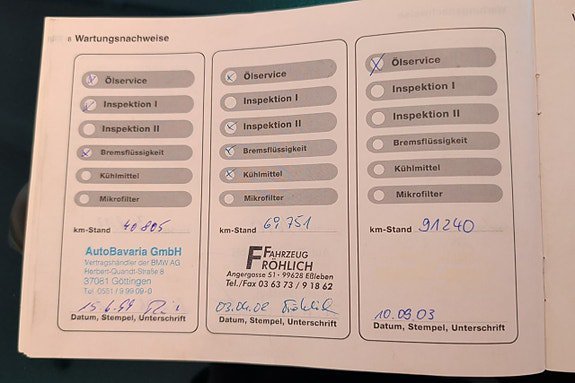 6 Wartungsnachweise
Ölservice
Inspektion I
Inspektion II
Bremsflüssigkeit
Kühlmittel
Mikrofilter
km-Stand 40 805
AutoBavaria GmbH
Vertragshändler der BMW AG
Herbert-Quandt-Straße 8
37081 Göttingen
Tel. 0551 / 9 99 09-0
15.6.99
Datum, Stempel, Unterschrift
Ölservice
Inspektion I
Inspektion II
Bremsflüssigkeit
Kühlmittel
Mikrofilter
km-Stand 69 751
FAHRZEUG
FRÖHLICH
Angergasse 51 · 99628 Eßleben
Tel./Fax 03 63 73 / 9 18 62
03.04.02 Fröhlich
Datum, Stempel, Unterschrift
Ölservice
Inspektion I
Inspektion II
Bremsflüssigkeit
Kühlmittel
Mikrofilter
km-Stand 91240
10.09.03
Datum, Stempel, Unterschrift